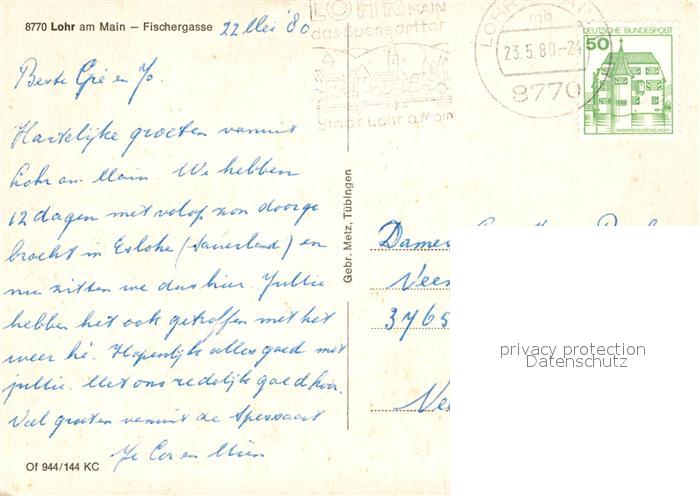 8770 Lohr am Main – Fischergasse 22 Mei '80
Beste Gré en Jo.
Hartelijke groeten vanuit
Lohr am Main. We hebben
12 dagen met volop zon doorge
bracht in Eslohe (Sauerland) en
nu zitten we dus hier. Jullie
hebben het ook getroffen met het
weer hè. Hopenlijk alles goed met
jullie. Met ons redelijk goed hoor.
Veel groeten vanuit de Spessart
Cor en Mien
Of 944/144 KC
Gebr. Metz, Tübingen
LOHR MAIN
das Spessarttor
Stadt Lohr a. Main
LOHR
mb
23.5.80-24
8770
DEUTSCHE BUNDESPOST
50
WASSERSCHLOSS INZLINGEN
Dames
3765
privacy protection
Datenschutz